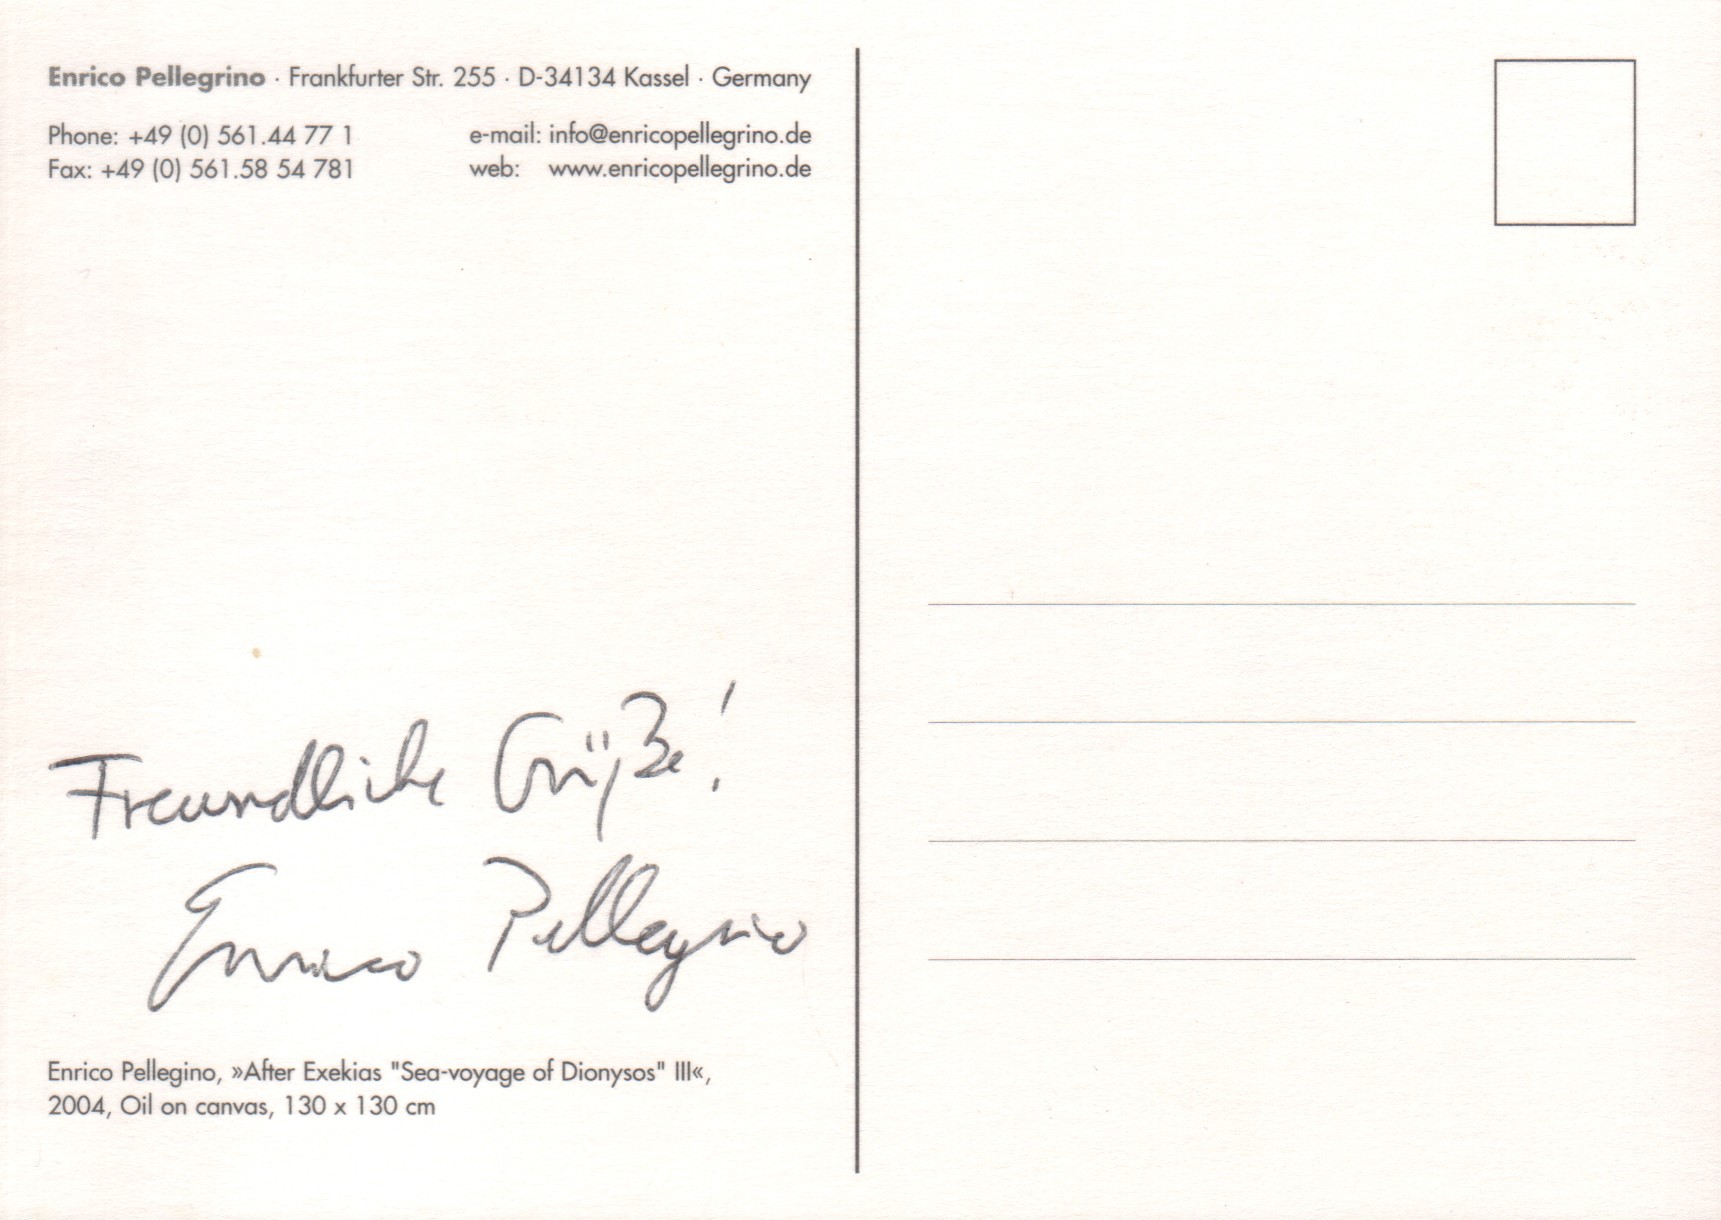 Enrico Pellegrino · Frankfurter Str. 255 · D-34134 Kassel · Germany
Phone: +49 (0) 561.44 77 1
Fax: +49 (0) 561.58 54 781
e-mail: info@enricopellegrino.de
web: www.enricopellegrino.de
Freundliche Grüße!
Enrico Pellegrino
Enrico Pellegino, »After Exekias "Sea-voyage of Dionysos" III«,
2004, Oil on canvas, 130 x 130 cm